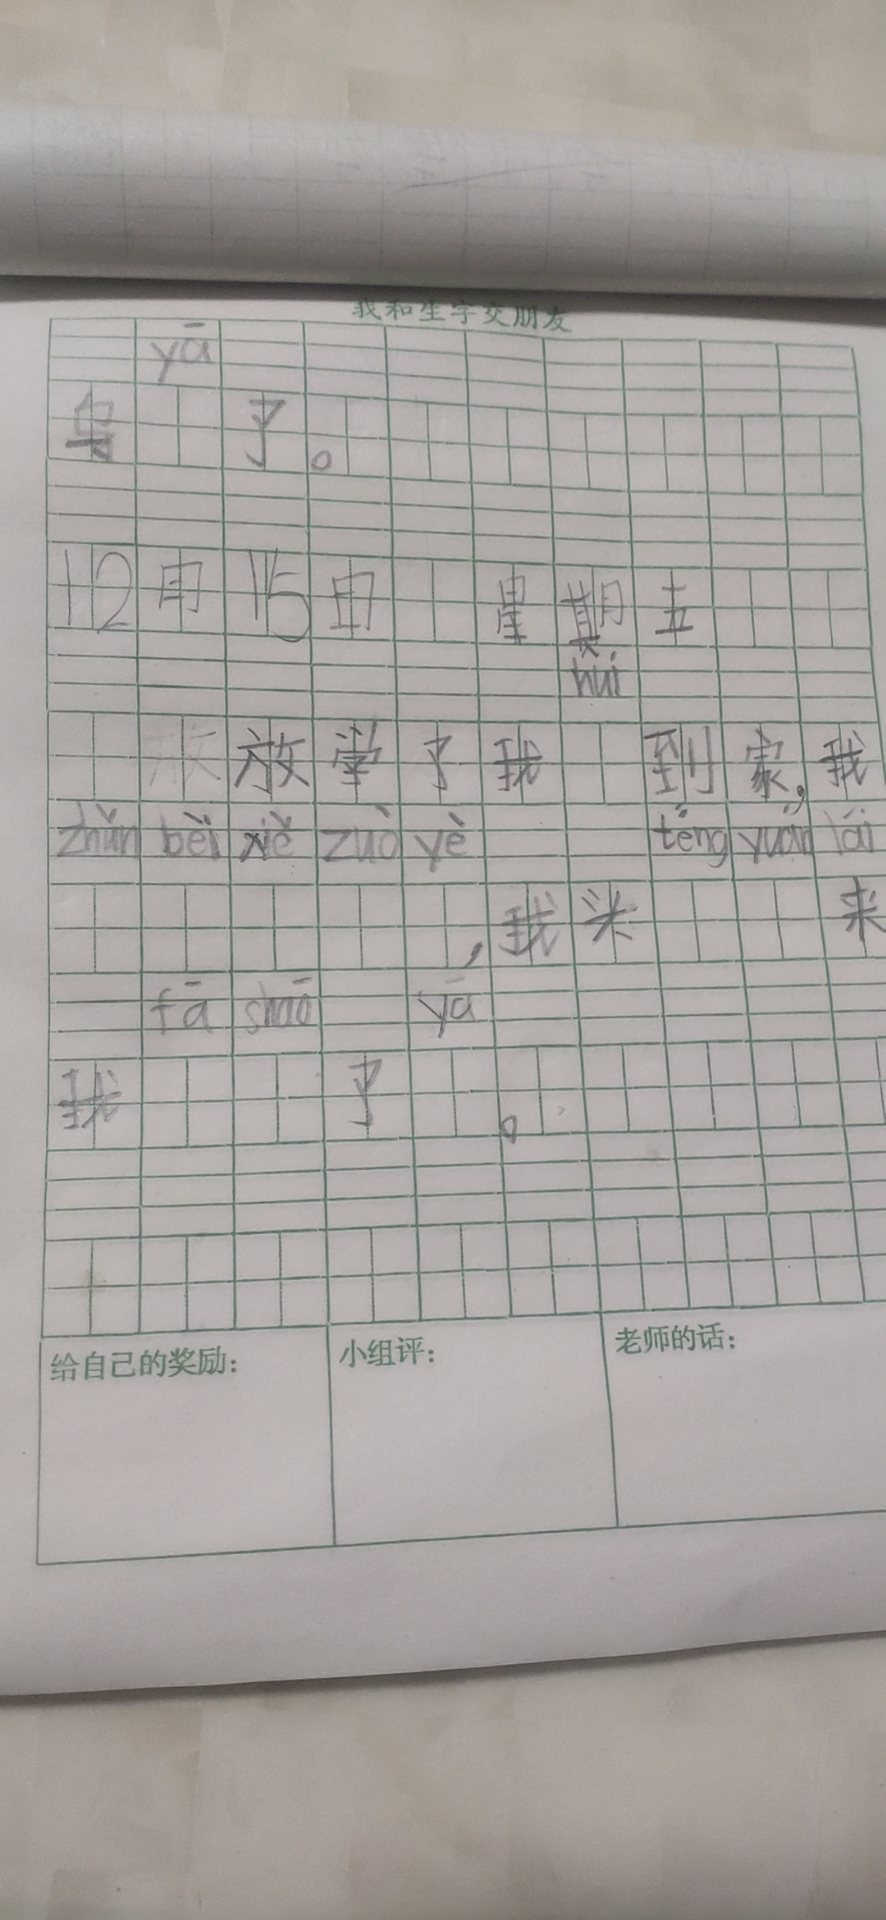 我和生字交朋友
yā
乌 了。
12月15日 星期五
huí
放学了我 到家,我
zhǔn bèi xiě zuò yè téng yuán lái
,我头 来
fā shāo yā
我 了 。
给自己的奖励: 小组评: 老师的话: